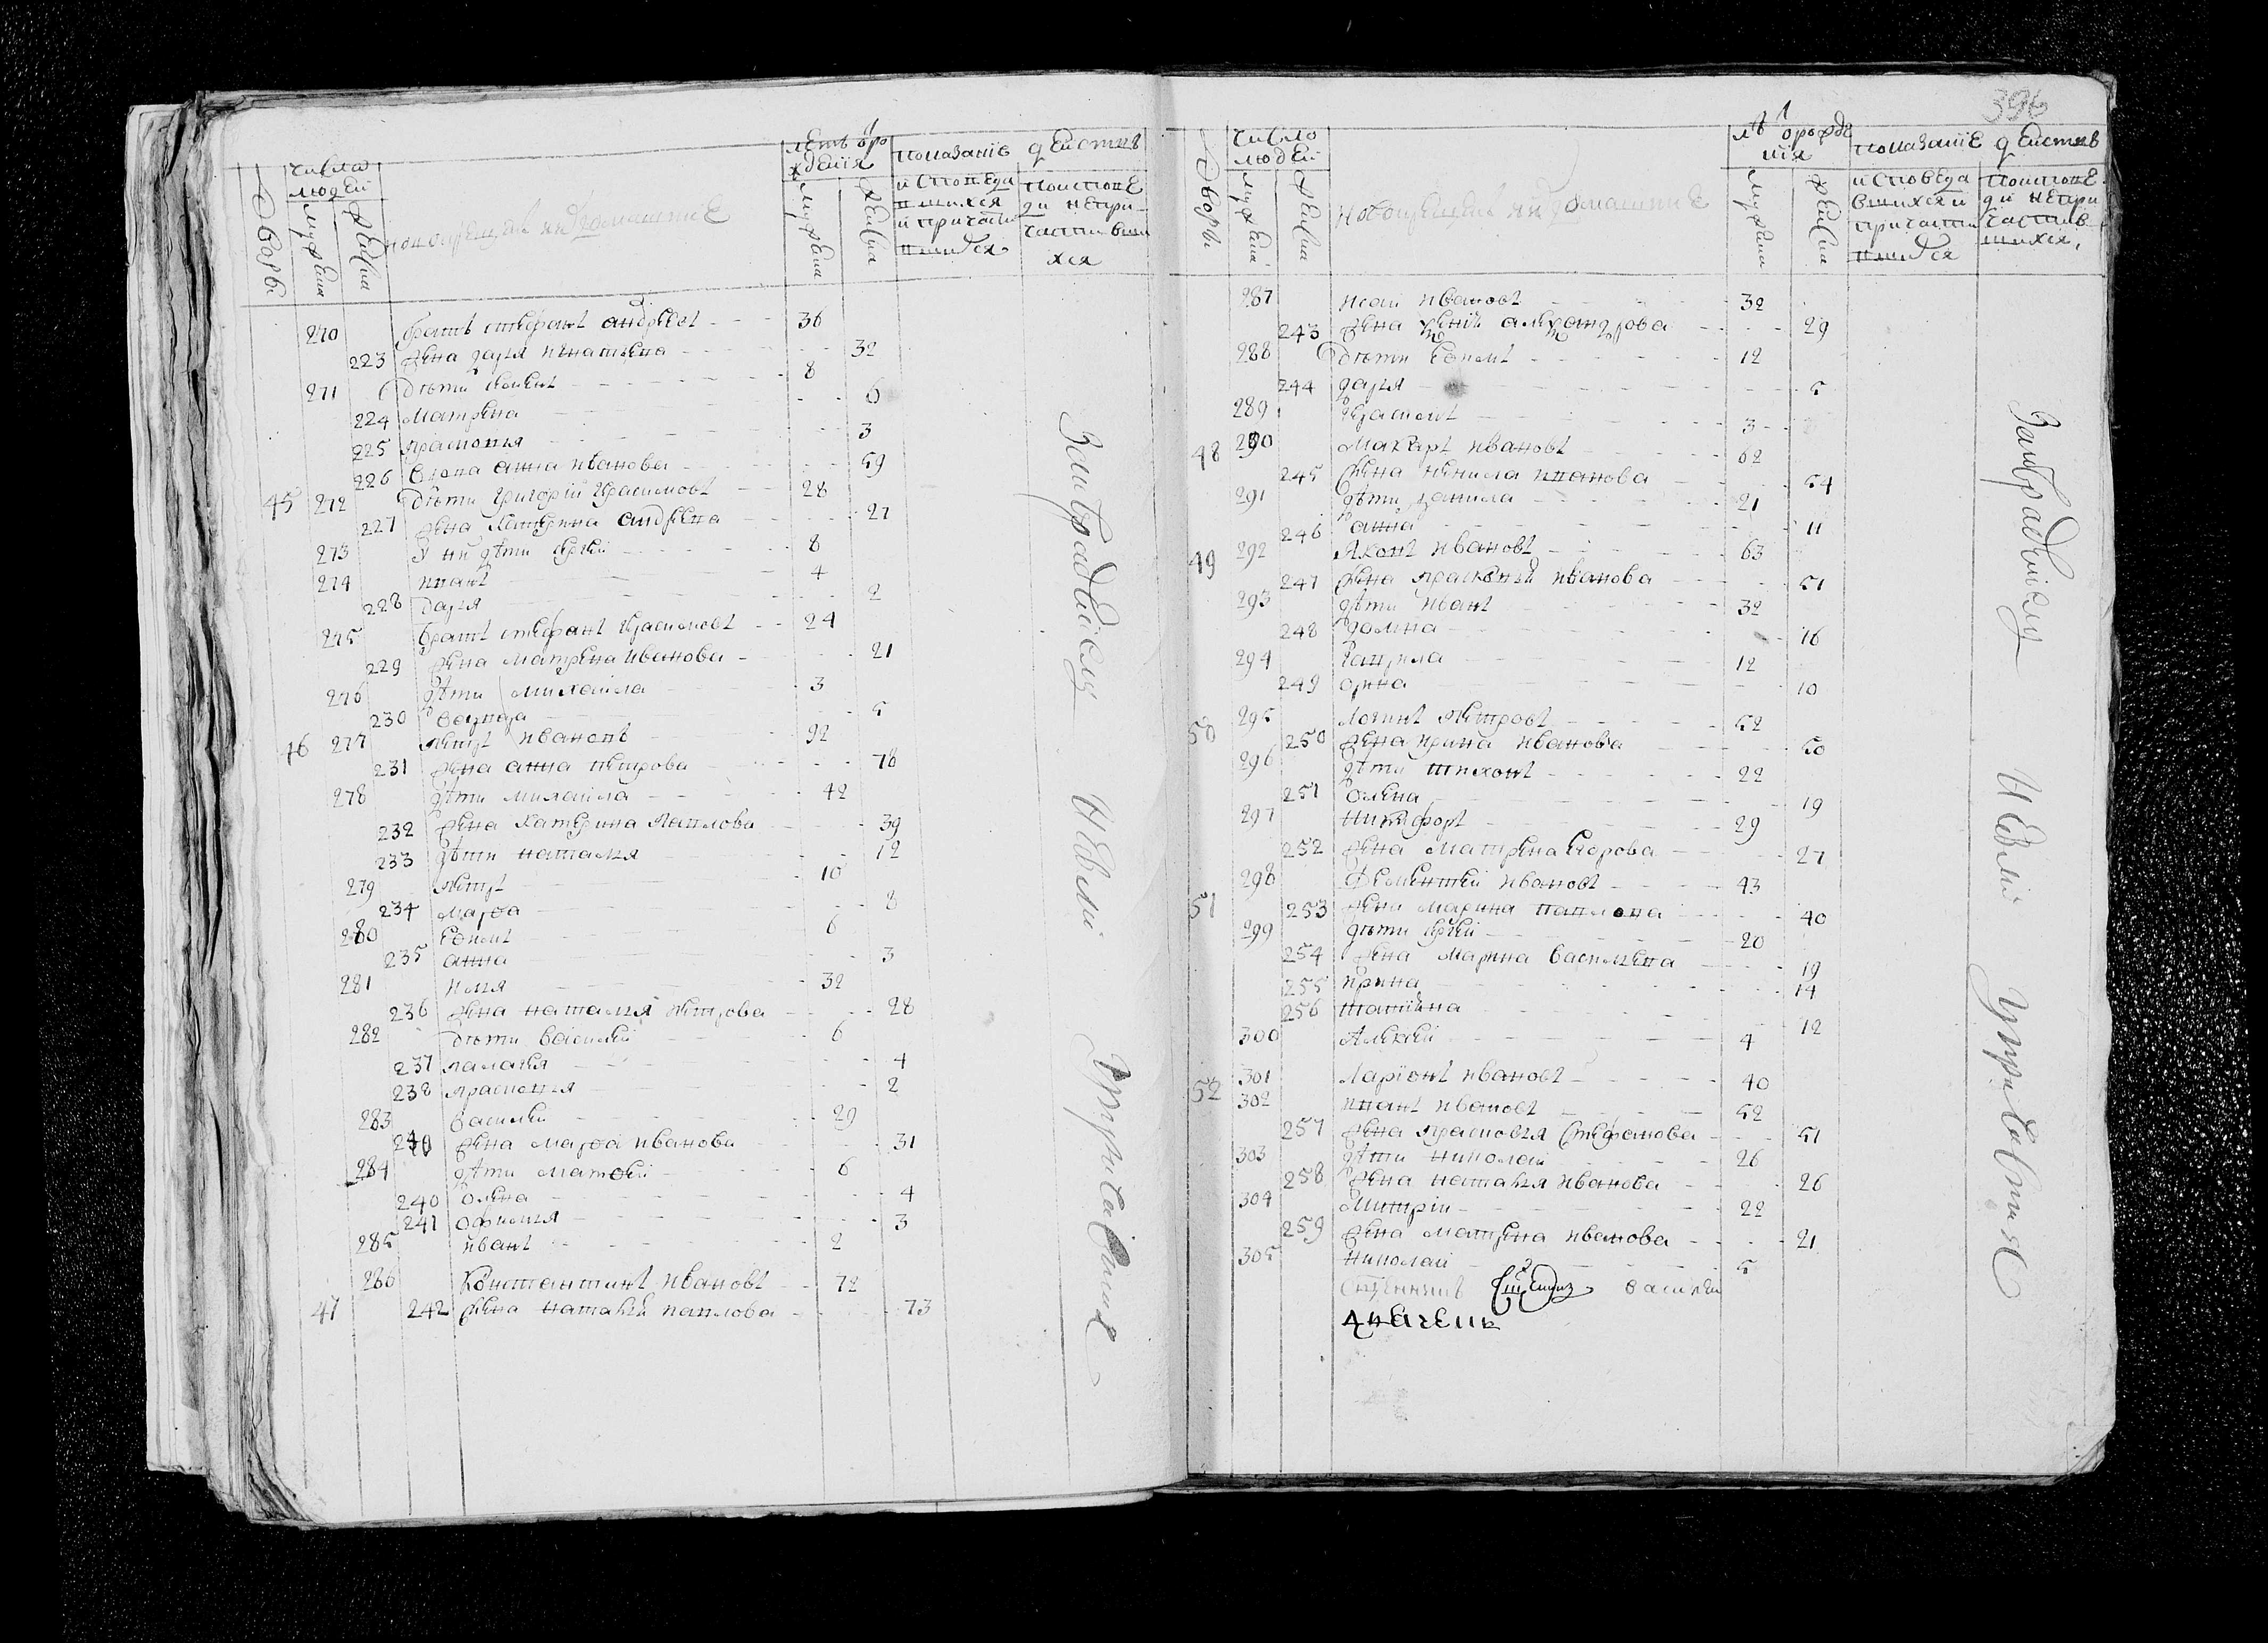 число людей
Дворы
мужеска
женска
новокрещены и их домашние
летъ от рождения
мужеска
женска
показание действъ
исповедавшихся и причастившихся
по исповеди не причастившихся
270 братъ стефанъ андреевъ 36
223 жена дарья игнатьева 32
271 дети семенъ 8
224 матрена 6
225 прасковья 3
226 вдова анна иванова 59
45 272 дети григорий герасимовъ 28
227 жена катерина андреева 27
273 у них дети сергей 8
274 иванъ 4
228 дарья 2
275 братъ стефанъ герасимовъ 24
229 жена матрена иванова 21
276 дети михаила 3
230 5
46 277 петръ ивановъ 92
231 жена анна петрова 78
278 дети михаила 42
232 жена катерина павлова 39
233 дети наталья 12
279 петръ 10
234 марфа 8
280 ефимъ 6
235 анна 3
281 илья 32
236 жена наталья петрова 28
282 дети василей 6
237 маланья 4
238 прасковья 2
283 василей 29
240 жена марфа иванова 31
284 дети матвей 6
240 олена 4
241 офимья 3
285 иванъ 2
286 Константинъ ивановъ 72
47 242 жена наталья павлова 73
За небрадениемъ не были у причастия
396
число людей
Дворы
мужеска
женска
новокрещены и их домашние
летъ от рождения
мужеска
женска
показание действъ
исповедавшихся и причастившихся
по исповеди не причастившихся
287 ивановъ 32
243 жена александрова 29
288 дети ефимъ 12
244 дарья 5
289 герасимъ 3
48 290 макаръ ивановъ 62
245 жена ненила иванова 54
291 дети данила 21
246 анна 11
49 292 яковъ ивановъ 63
247 жена прасковья иванова 51
293 дети иванъ 32
248 домна 16
294 гаврила 12
249 орина 10
50 295 логинъ петровъ 52
250 жена ирина иванова 50
296 дети тихонъ 22
251 олена 19
297 никифоръ 29
252 жена матрена егорова 27
51 298 Дементей ивановъ 43
253 жена марина павлова 40
299 дети сергей 20
254 жена марина васильева 19
255 ирина 14
256 татияна 12
300 алексей 4
52 301 ларионъ ивановъ 40
302 иванъ ивановъ 52
257 жена прасковья стефанова 51
303 дети николай 26
258 жена наталья иванова 26
304 митрий 22
259 жена матрена иванова 21
305 николай 5
василей